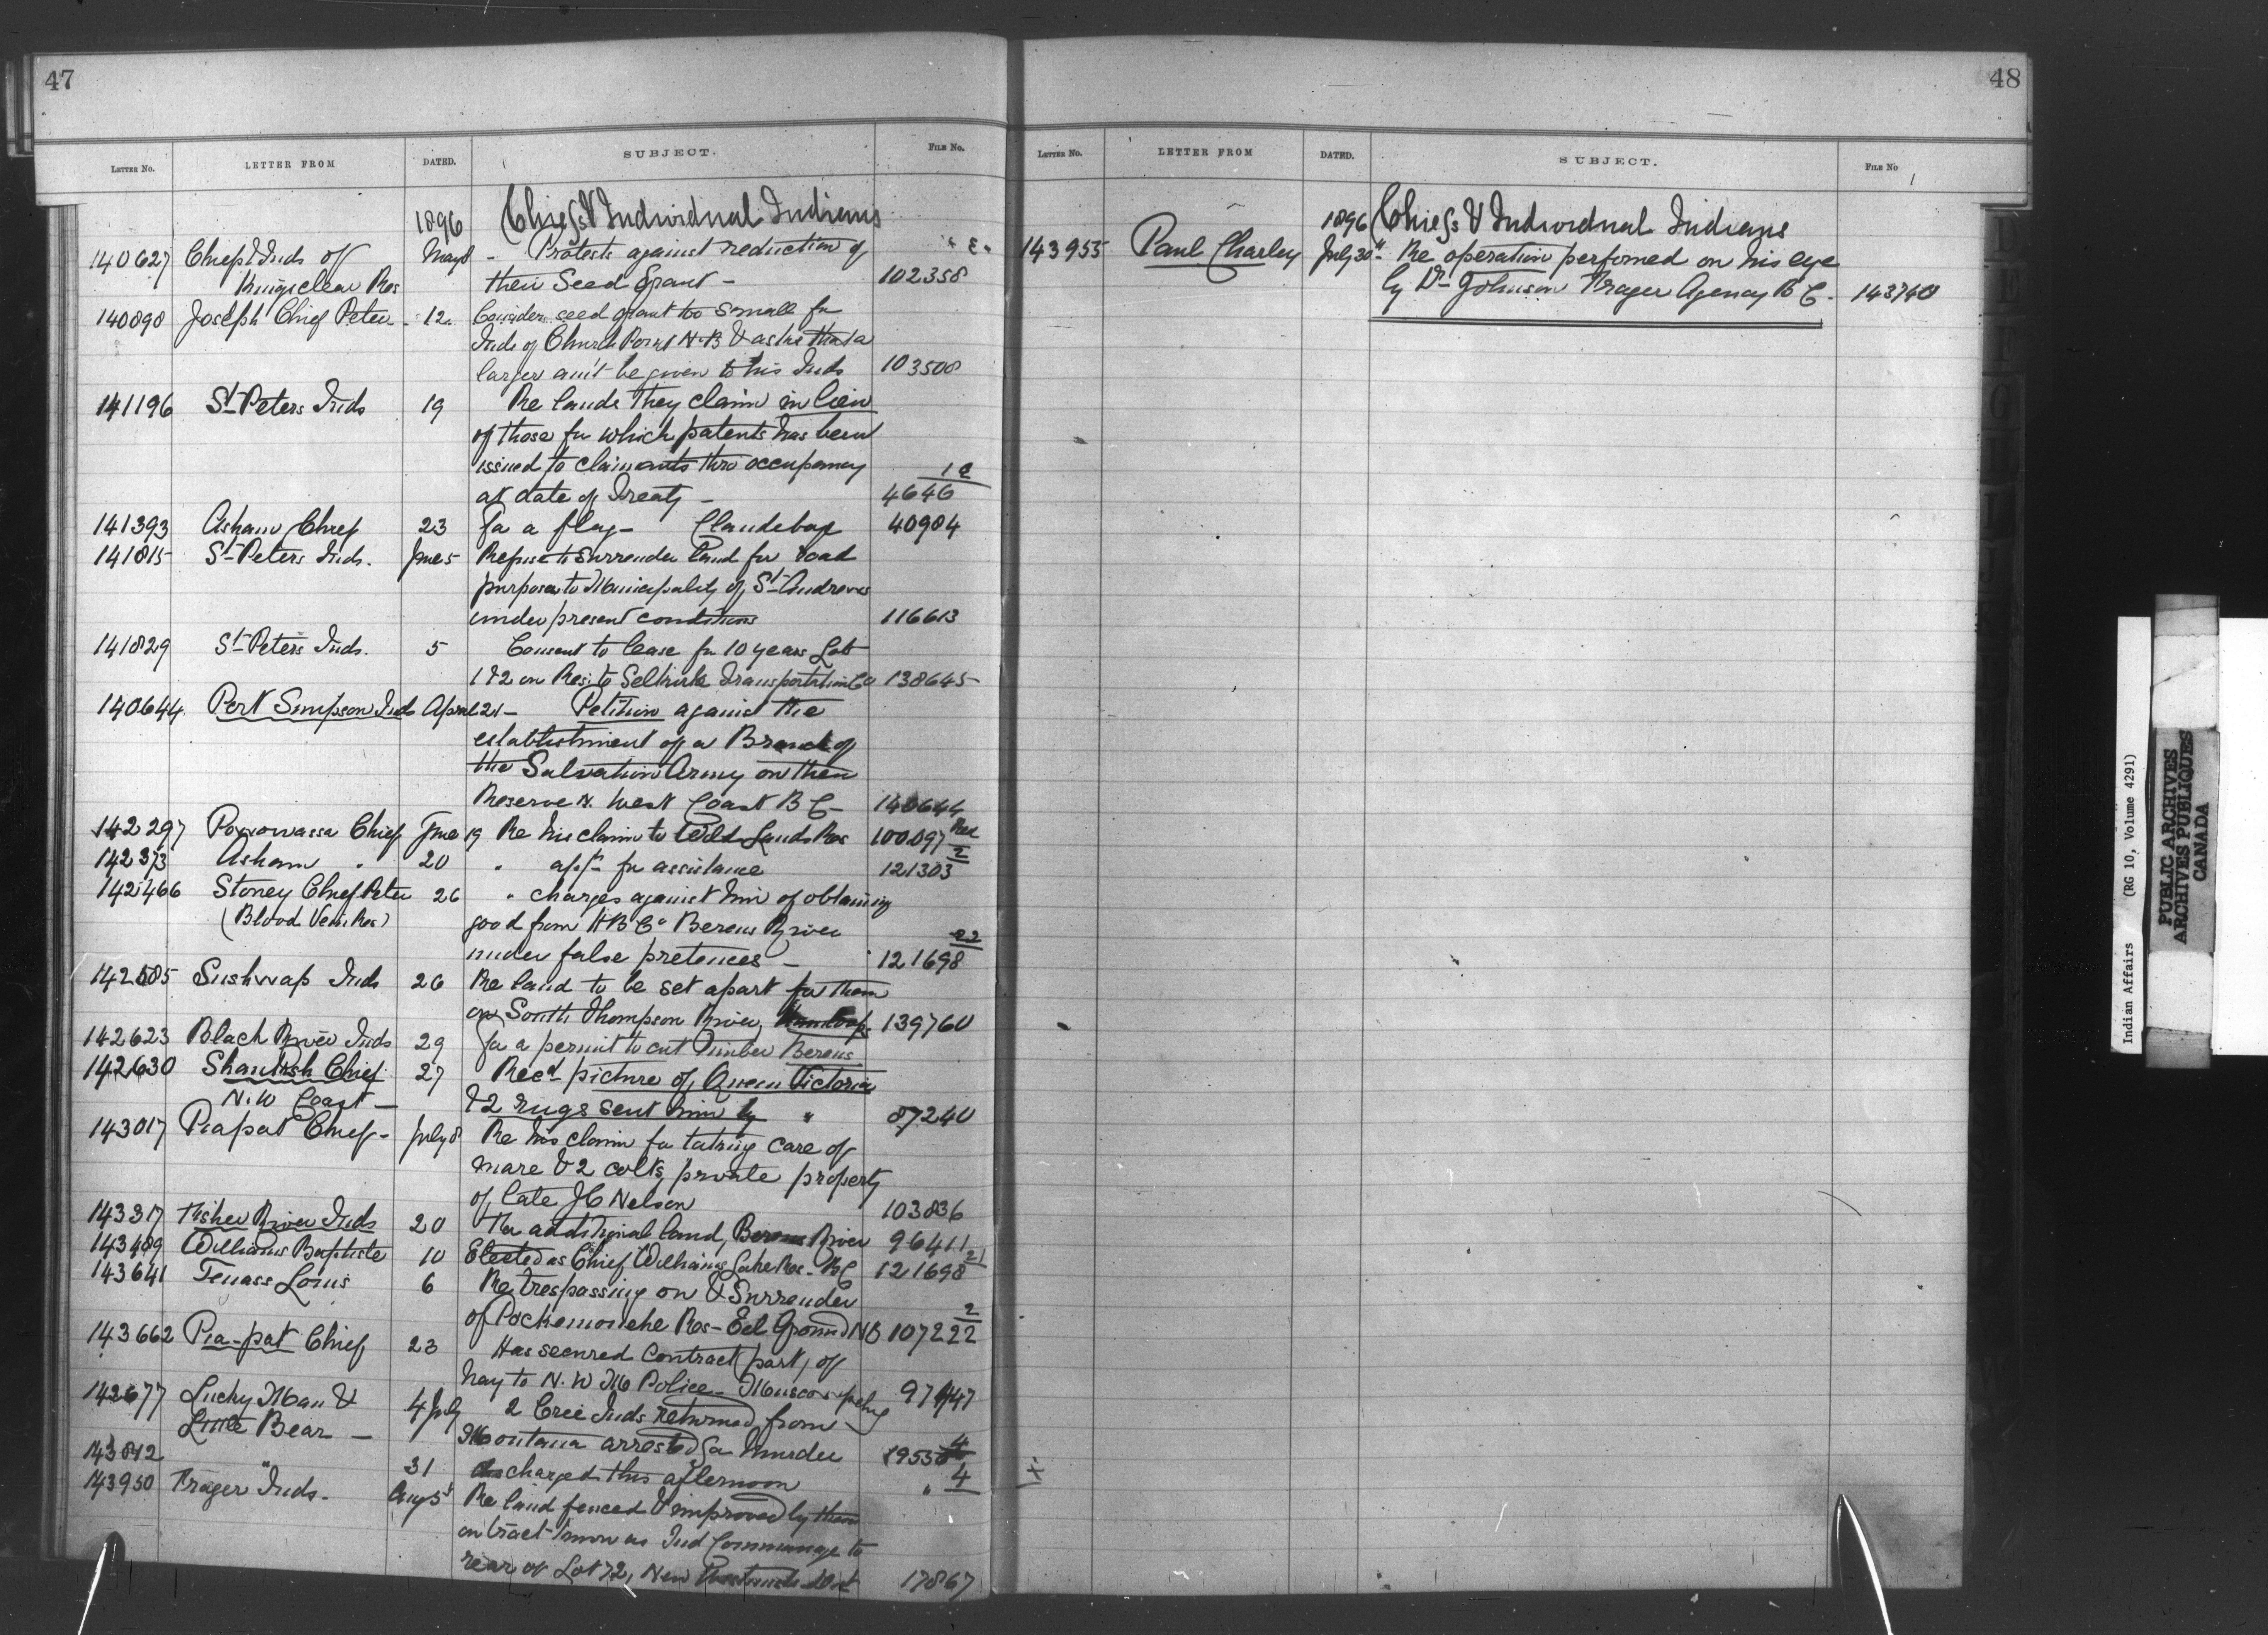 47
LETTER NO. LETTER FROM DATED. SUBJECT. FILE NO.
1896 Chiefs & Individual Indians
140627 Chief & Inds of May 8 - Protests against reduction of
Kingsclear Res their Seed Grant - 102358
140898 Joseph Chief Peter - 12 Considers seed grant too small for
Inds of Church Point N.B & asks that a
larger am't be given to his Inds 103508
141196 St Peters Inds 19 Re lands they claim in lieu
of those for which patents has been
issued to claimants thro occupancy
at date of Treaty - 4646
141393 Asham Chief 23 For a flag - Clandeboye 40984
141815 St Peters Inds. June 5 Refuse to surrender land for road
purposes to Municipality of St Andrews
under present conditions 116613
141829 St Peters Inds. 5 Consent to lease for 10 years Lots
1 & 2 on Res. to Selkirk Transportation Co 138645
140644 Port Simpson Inds April 21 - Petition against the
establishment of a Branch of
the Salvation Army on their
Reserve N. West Coast B C - 140644
142297 Chief June 19 Re his claim to Wild Lands Res 100,097
142373 Asham " 20 " app'n for assistance 121303 2
142466 Stoney Chief Peter 26 " charges against him of obtaining
(Blood Vein Res) good from H B Co Berens River
under false pretences - 121698 22
142605 Sushwap Inds 26 Re land to be set apart for them
on South Thompson River, Kamloops 139760
142623 Black River Inds 29 For a permit to cut Timber Berens
142630 Chief 27 Rec'd picture of Queen Victoria
N.W Coast - & 2 rugs sent him by " 87240
143017 Piapot Chief - July 8 Re his claim for taking care of
mare & 2 colts, private property
of late J C Nelson 103836
143317 Fisher River Inds 20 For additional land, Berens River 96411
143489 Williams Baptiste 10 Elected as Chief Williams Lake Res - B C 121698 21
143641 Tenass Louis 6 Re trespassing on & Surrender
of Pockemouche Res - Eel Ground NB 107222 2
143662 Pia-pot Chief 23 Has secured contract (part) of
hay to N. W M Police - Muscowpetung 97447
142677 Lucky Man & 4 July 2 Cree Inds returned from
Little Bear - Montana arrested for Murder 4
143812 " 31 discharged this afternoon " 4
143950 Frazer Inds. Aug 5 Re land fenced & improved by them
on tract known as Ind Commonage to
rear of Lot 72, New Westminster Dist 17867
48
LETTER NO. LETTER FROM DATED. SUBJECT. FILE NO
1896 Chiefs & Individual Indians
143955 Paul Charley July 30" - Re operation performed on his eye
by Dr Johnson Frazer Agency B C. 143740
Indian Affairs (RG 10, Volume 4291)
PUBLIC ARCHIVES
ARCHIVES PUBLIQUES
CANADA